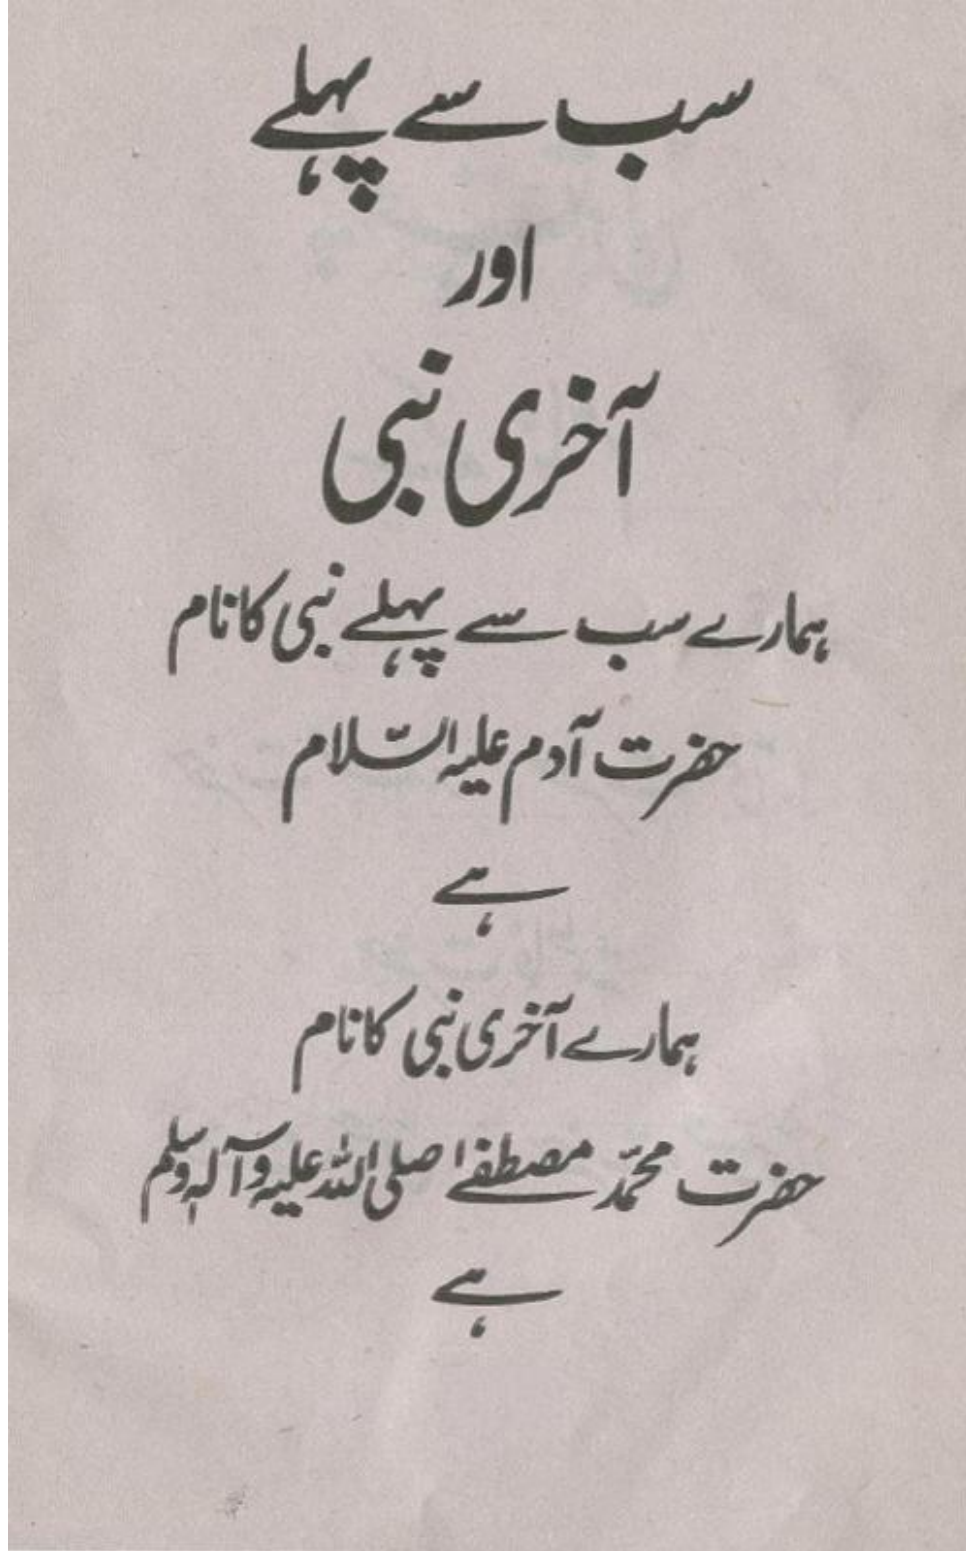 سب سے پہلے
اور
آخری نبی
ہمارے سب سے پہلے نبی کا نام
حضرت آدم علیہ السّلام
ہے
ہمارے آخری نبی کا نام
حضرت محمّد مصطفےٰ صلی اللہ علیہ وآلہٖ وسلم
ہے